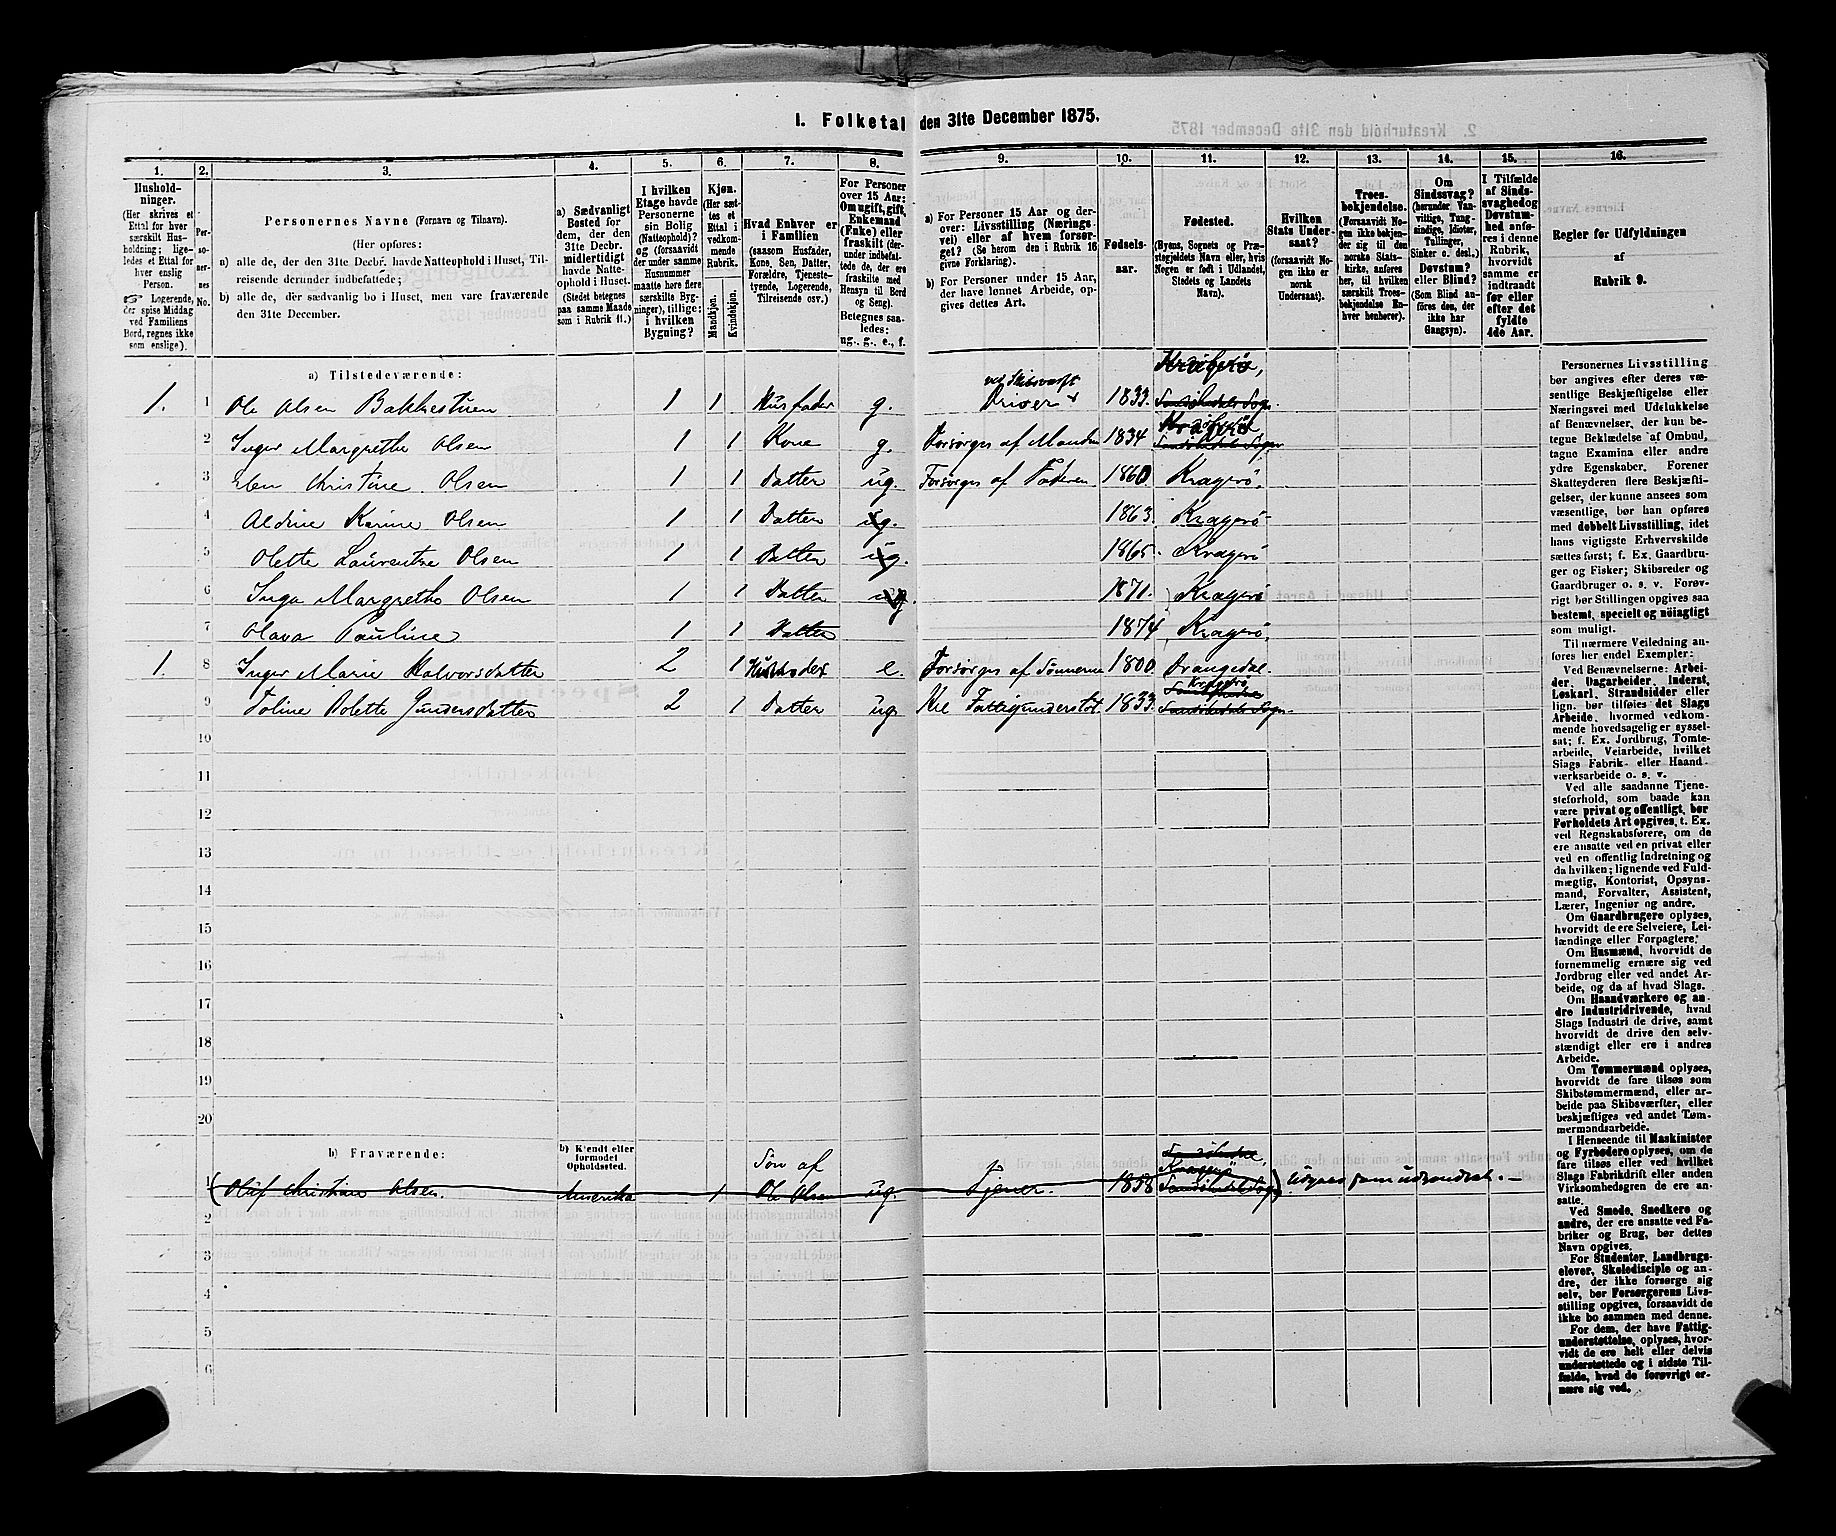 I. Folketal den 31te December 1875.
1. 2. 3. 4. 5. 6. 7. 8. 9. 10. 11. 12. 13. 14. 15. 16.
Hushold-
ninger.
(Her skrives et
Ettal for hver
særskilt Hus-
holdning; lige-
ledes et Ettal for
hver enslig
Person.
☞ Logerende,
der spise Middag
ved Familiens
Bord, regnes ikke
som enslige).
Per-
so-
ner-
nes
No.
Personernes Navne (Fornavn og Tilnavn).
(Her opføres:
a) alle de, der den 31te Decbr. havde Natteophold i Huset, Til-
reisende derunder indbefattede;
b) alle de, der sædvanlig bo i Huset, men vare fraværende
den 31te December.
a) Sædvanligt
Bosted for
dem, der den
31te Decbr.
midlertidigt
havde Natte-
ophold i Huset.
(Stedet betegnes
paa samme Maade
som i Rubrik 11.)
I hvilken
Etage havde
Personerne
sin Bolig
(Natteophold)?
og (forsaavidt
der under samme
Husnummer
maatte høre flere
særskilte Byg-
ninger), tillige:
i hvilken
Bygning?
Kjøn.
(Her sæt-
tes et
Ettal i
vedkom-
mende
Rubrik.
Mandkjøn.
Kvindekjøn.
Hvad Enhver er
i Familien
(saasom Husfader,
Kone, Søn, Datter,
Forældre, Tjeneste-
tyende, Logerende,
Tilreisende osv.)
For Personer
over 15 Aar:
Om ugift, gift,
Enkemand
(Enke) eller
fraskilt (der-
under indbefat-
tede de, der ere
fraskilte med
Hensyn til Bord
og Seng).
Betegnes saa-
ledes:
ug., g., e., f.
a) For Personer 15 Aar og der-
over: Livsstilling (Nærings-
vei) eller af hvem forsør-
get? (Se herom den i Rubrik 16
givne Forklaring).
b) For Personer under 15 Aar,
der have lønnet Arbeide, op-
gives dettes Art.
Fødsels-
aar.
Fødested.
(Byens, Sognets og Præ-
stegjeldets Navn eller, hvis
Nogen er født i Udlandet,
Stedets og Landets
Navn).
Hvilken
Stats Under-
saat?
(forsaavidt No-
gen ikke er
norsk
Undersaat).
Troes-
bekjendelse.
(Forsaavidt No-
gen ikke bekjen-
der sig til den
norske Stats-
kirke, anføres
her, til hvilken
særskilt Troes-
bekjendelse En-
hver henhører).
Om
Sindssvag?
(herunder Van-
vittige, Tung-
sindige, Idioter,
Tullinger,
Sinker o. desl.)
Døvstum?
eller Blind?
(Som Blind an-
føres den, der
ikke har
Gangsyn).
I Tilfælde
af Sinds-
svaghed og
Døvstum-
hed anfø-
res i denne
Rubrik,
hvorvidt
samme er
indtraadt
før eller
efter det
fyldte
4de Aar.
Regler for Udfyldningen
af
Rubrik 9.
a) Tilstedeværende:
1. 1 Ole Olsen Bakkestuen 1 1 Husfader g. Driver ved Skibsværft 1833. Kragerø, Sandøkedals Sogn.
2 Inger Margrethe Olsen 1 1 Kone g. Forsørges af Manden 1834 Kragerø Sandøkedals Sogn
3 Elen Kristine Olsen 1 1 Datter ug. Forsørges af Faderen 1860 Kragerø.
4 Aldine Karine Olsen 1 1 Datter ug. 1863. Kragerø
5 Olette Laurentse Olsen 1 1 Datter ug. 1865. Kragerø
6 Inga Margrethe Olsen 1 1 Datter ug. 1871. Kragerø
7 Olava Pauline 1 1 Datter 1874 Kragerø,
1. 8 Inger Marie Halvorsdatter 2 1 Husmoder e. Forsørges af Sønnerne 1800. Drangedal.
9 Toline Dolette Gundersdatter 2 1 Datter ug. Fattigunderstøt. 1833. Kragerø Sandøkedals Sogn.
10
11
12
13
14
15
16
17
18
19
20
b) Fraværende:
b) Kjendt eller
formodet
Opholdssted.
1 (Oluf Christian Olsen. Amerika 1 Søn af Ole Olsen ug. 1858 Kragerø Sandøkedals Sogn) Udgaar som udvandret. —
2
3
4
5
6
Personernes Livsstilling
bør angives efter deres væ-
sentlige Beskjæftigelse eller
Næringsvei med Udelukkelse
af Benævnelser, der kun be-
tegne Beklædelse af Ombud,
tagne Examina eller andre
ydre Egenskaber. Forener
Skatteyderen flere Beskjæfti-
gelser, der kunne ansees som
væsentlige, bør han opføres
med dobbelt Livsstilling, idet
hans vigtigste Erhvervskilde
sættes først; f. Ex. Gaardbru-
ger og Fisker; Skibsreder og
Gaardbruger o. s. v. Forøv-
rigt bør Stillingen opgives saa
bestemt, specielt og nöiagtigt
som muligt.
Til nærmere Veiledning an-
føres her endel Exempler:
Ved Benævnelserne: Arbei-
der, Dagarbeider, Inderst,
Løskarl, Strandsidder eller
lign. bør tilføies det Slags
Arbeide, hvormed vedkom-
mende hovedsagelig er syssel-
sat; f. Ex. Jordbrug, Tomte-
arbeide, Veiarbeide, hvilket
Slags Fabrik- eller Haand-
værksarbeide o. s. v.
Ved alle saadanne Tjene-
steforhold, som baade kan
være privat og offentligt, bør
Forholdets Art opgives, t. Ex.
ved Regnskabsførere, om de
ere ansatte ved en privat eller
ved en offentlig Indretning og
da hvilken; lignende ved Fuld-
mægtig, Kontorist, Opsyns-
mand, Forvalter, Assistent,
Lærer, Ingeniør og andre.
Om Gaardbrugere oplyses,
hvorvidt de ere Selveiere, Lei-
lændinge eller Forpagtere.
Om Husmænd, hvorvidt de
fornemmelig ernære sig ved
Jordbrug eller ved andet Ar-
beide, og da af hvad Slags.
Om Haandværkere og an-
dre Industridrivende, hvad
Slags Industri de drive, samt
hvorvidt de drive den selv-
stændigt eller ere i andres
Arbeide.
Om Tømmermænd oplyses,
hvorvidt de fare tilsøs som
Skibstømmermænd, eller ar-
beide paa Skibsværfter, eller
beskjæftiges ved andet Tøm-
mermandsarbeide.
I Henseende til Maskinister
og Fyrbødere oplyses, om de
fare tilsøs eller ved hvilket
Slags Fabrikdrift eller anden
Virksomhedsgren de ere an-
satte.
Ved Smede, Snedkere og
andre, der ere ansatte ved Fa-
briker og Brug, bør dettes
Navn opgives.
For Studenter, Landbrugs-
elever, Skoledisciple og an-
dre, der ikke forsørge sig
selv, bør Forsørgerens Livs-
stilling opgives, forsaavidt de
ikke bo sammen med denne.
For dem, der have Fattig-
understøttelse, oplyses, hvor-
vidt de ere helt eller delvis
understøttede og i sidste Til-
fælde, hvad de forøvrigt er-
nære sig ved.